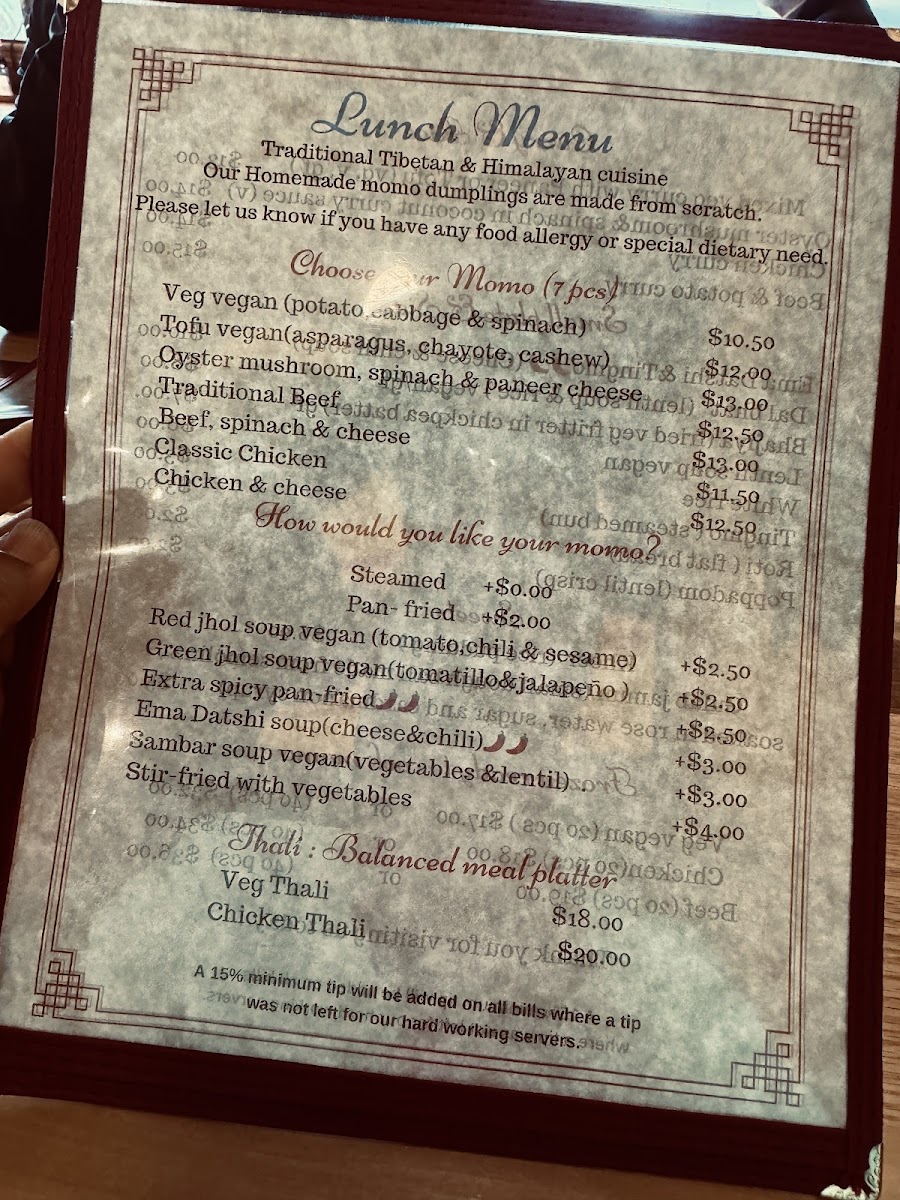 Lunch Menu
Traditional Tibetan & Himalayan cuisine
Our Homemade momo dumplings are made from scratch.
Please let us know if you have any food allergy or special dietary need.
Choose Your Momo (7 pcs)
Veg vegan (potato,cabbage & spinach) $10.50
Tofu vegan(asparagus, chayote, cashew) $12.00
Oyster mushroom, spinach & paneer cheese $13.00
Traditional Beef $12.50
Beef, spinach & cheese $13.00
Classic Chicken $11.50
Chicken & cheese $12.50
How would you like your momo?
Steamed +$0.00
Pan- fried +$2.00
Red jhol soup vegan (tomato,chili & sesame) +$2.50
Green jhol soup vegan(tomatillo&jalapeño ) +$2.50
Extra spicy pan-fried +$2.50
Ema Datshi soup(cheese&chili) +$3.00
Sambar soup vegan(vegetables &lentil) +$3.00
Stir-fried with vegetables +$4.00
Thali : Balanced meal platter
Veg Thali $18.00
Chicken Thali $20.00
A 15% minimum tip will be added on all bills where a tip
was not left for our hard working servers.